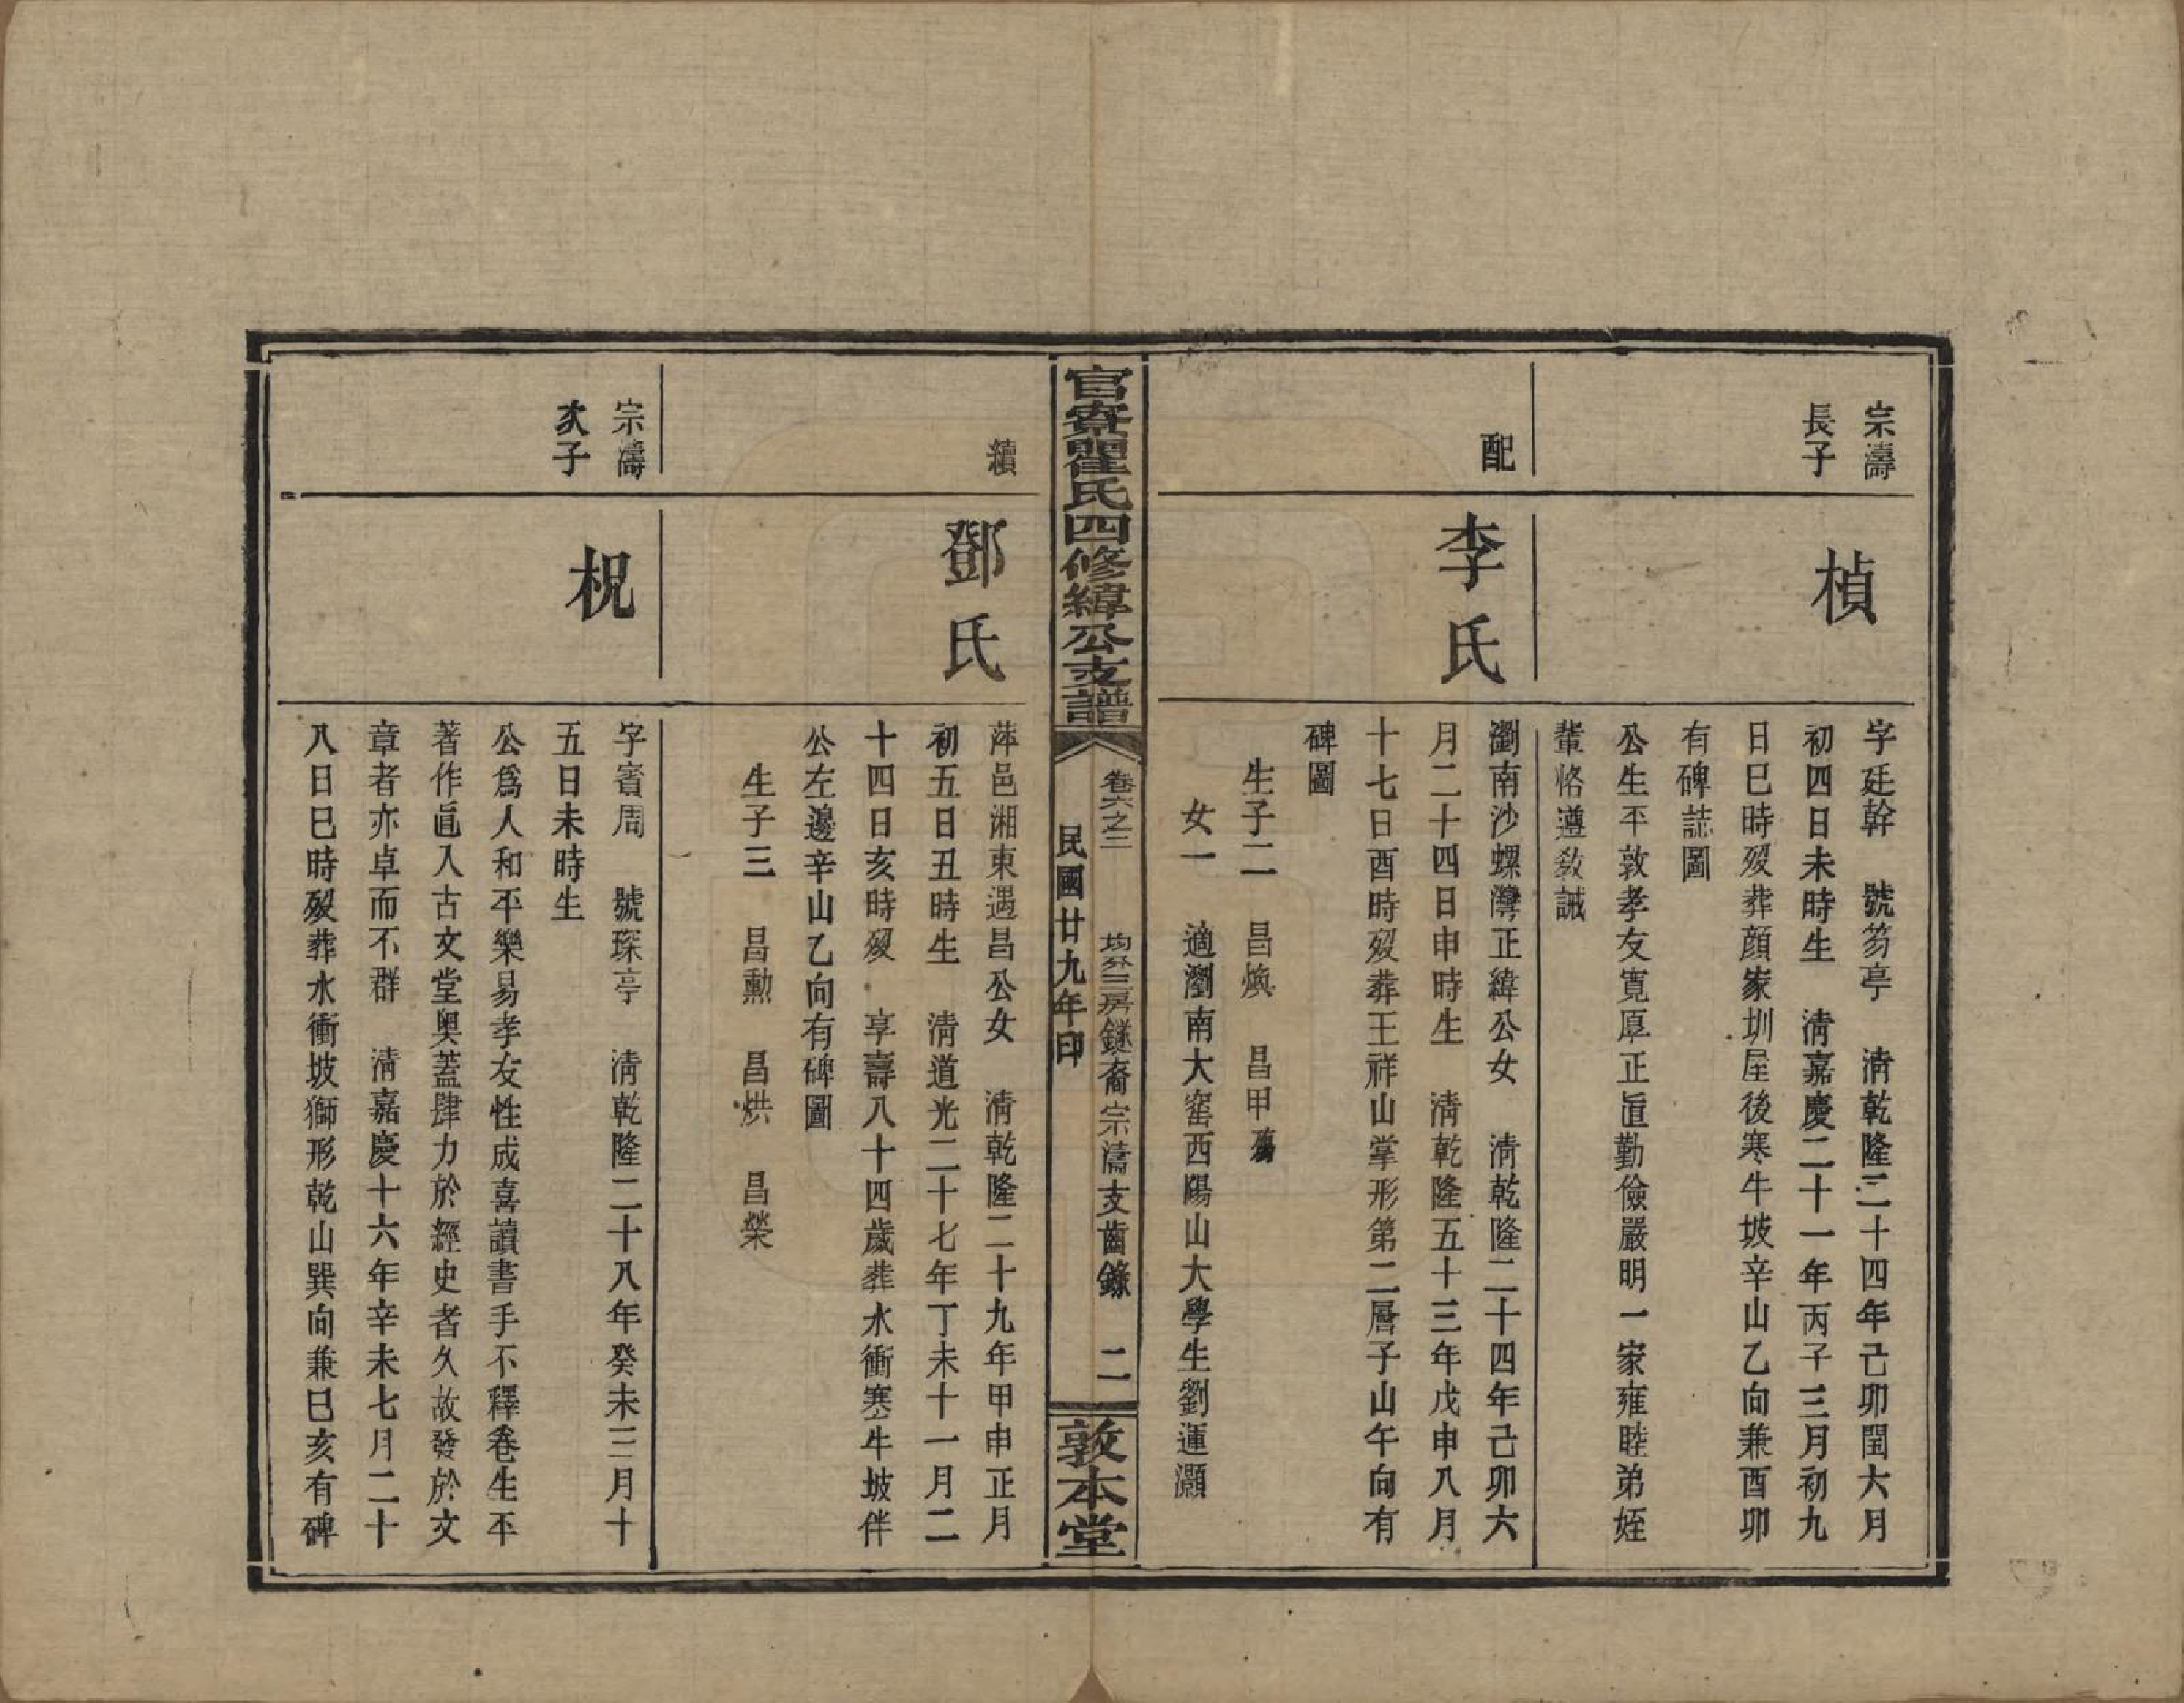 宗濤
長子
楨
字廷幹　號笏亭　清乾隆二十四年己卯閏六月
初四日未時生　清嘉慶二十一年丙子三月初九
日巳時歿葬顔家圳屋後寒牛坡辛山乙向兼酉卯
有碑誌圖
公生平敦孝友寬厚正直勤儉嚴明一家雍睦弟姪
輩恪遵敎誡
配
李氏
瀏南沙螺灣正緯公女　清乾隆二十四年己卯六
月二十四日申時生　清乾隆五十三年戊申八月
十七日酉時歿葬王祥山掌形第二層子山午向有
碑圖
生子二　昌煥　昌甲殤
女一　適瀏南大窰西陽山大學生劉運灝
官寮瞿氏四修緯公支譜
卷六之二　均外三房鐩裔宗濤支齒錄　二
民國廿九年印
敦本堂
續
鄧氏
萍邑湘東遇昌公女　清乾隆二十九年甲申正月
初五日丑時生　清道光二十七年丁未十一月二
十四日亥時歿　享壽八十四歲葬水衝寒牛坡伴
公左邊辛山乙向有碑圖
生子三　昌勳　昌烘　昌榮
宗濤
次子
柷
字賓周　號琛亭　清乾隆二十八年癸未三月十
五日未時生
公爲人和平樂易孝友性成喜讀書手不釋卷生平
著作直入古文堂奥蓋肆力於經史者久故發於文
章者亦卓而不群　清嘉慶十六年辛未七月二十
八日巳時歿葬水衝坡獅形乾山巽向兼巳亥有碑